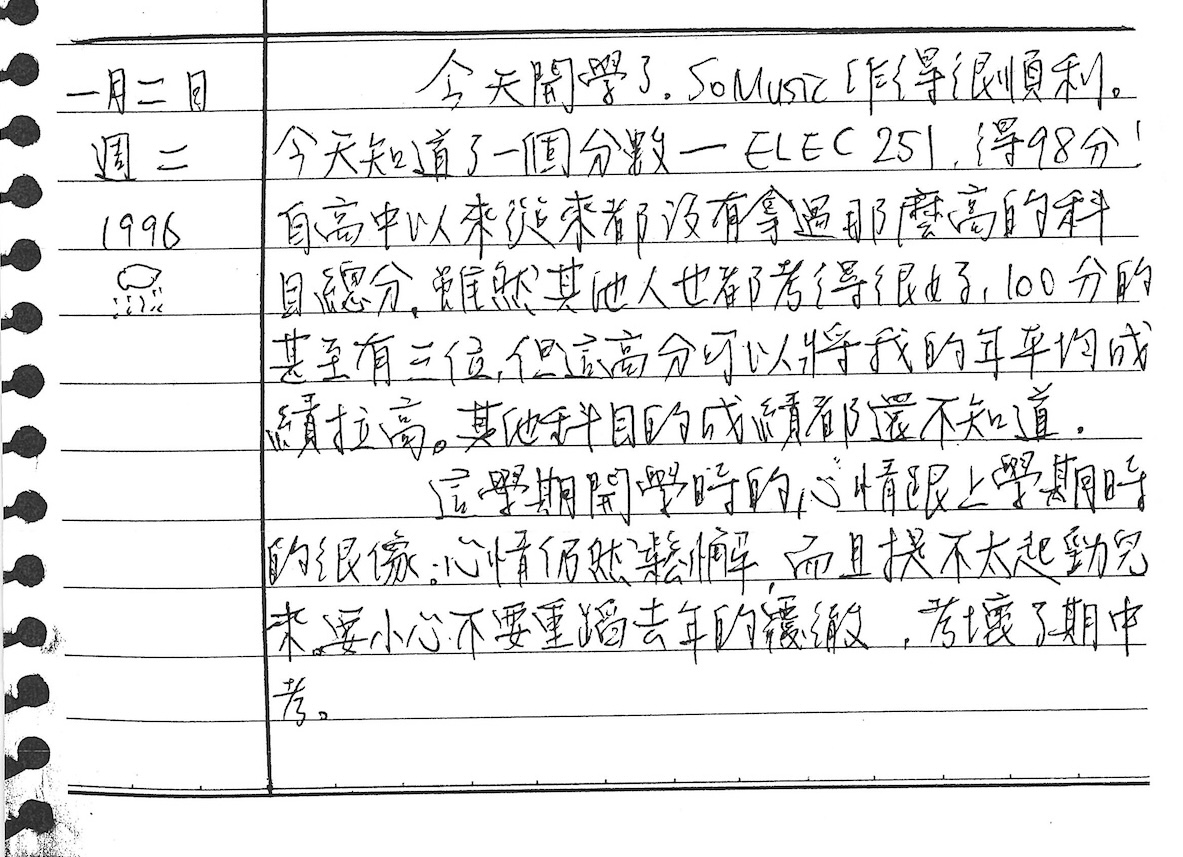 一月二日
週二
1996
今天開學了. SoMusic 作得很順利。
今天知道了一個分數—ELEC 251, 得98分!
自高中以來從來都沒有拿過那麼高的科
目總分。雖然其他人也都考得很好, 100分的
甚至有三位, 但這高分可以將我的年平均成
績拉高。其他科目的成績都還不知道.
這學期開學時的心情跟上學期時
的很像:心情仍然鬆懈, 而且提不太起勁兒
來。要小心不要重蹈去年的覆徹, 考壞了期中
考。